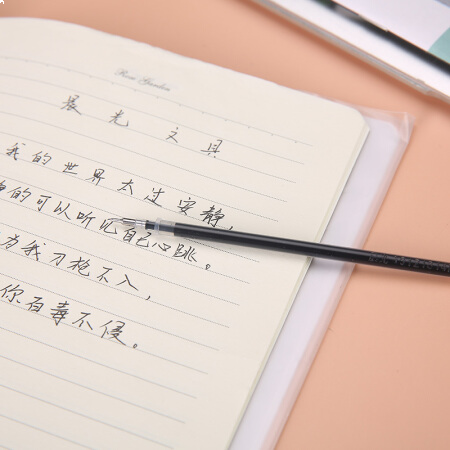 Rose Garden
晨光文具
我的世界太过安静,
的可以听见自己心跳。
为我刀枪不入,
你百毒不侵。